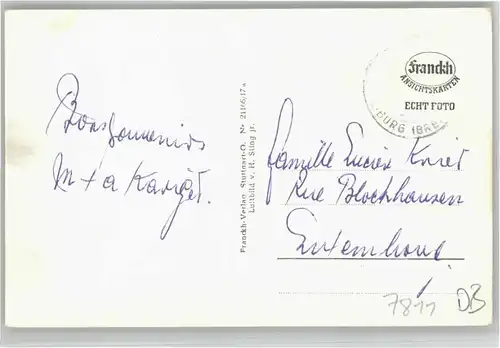 Bons Souvenirs
M + a
Franckh-Verlag, Stuttgart-O. Nr. 21166/17a
Luftbild v. H. Sting jr.
Franckh
ANSICHTSKARTEN
ECHT FOTO
BURG (BR
Famille Lucien
Rue Blochhausen
Luxembourg
7811 DB